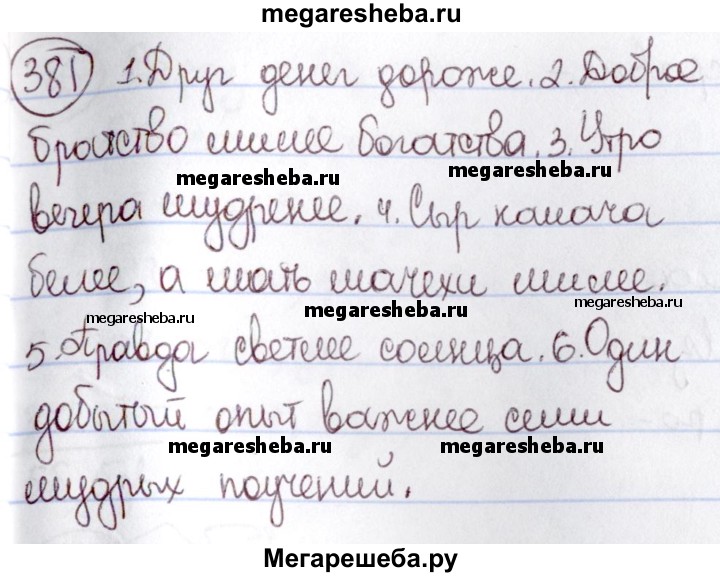 megaresheba.ru
381 1. Друг денег дороже. 2. Доброе
братство милее богатства. 3. Утро
megaresheba.ru megaresheba.ru
вечера мудренее. 4. Сыр калача
белее, а мать мачехи милее.
megaresheba.ru megaresheba.ru megaresheba.ru
5. Правда светлее солнца. 6. Один
добытый опыт важнее семи
megaresheba.ru megaresheba.ru
мудрых поучений.
Мегарешеба.ру